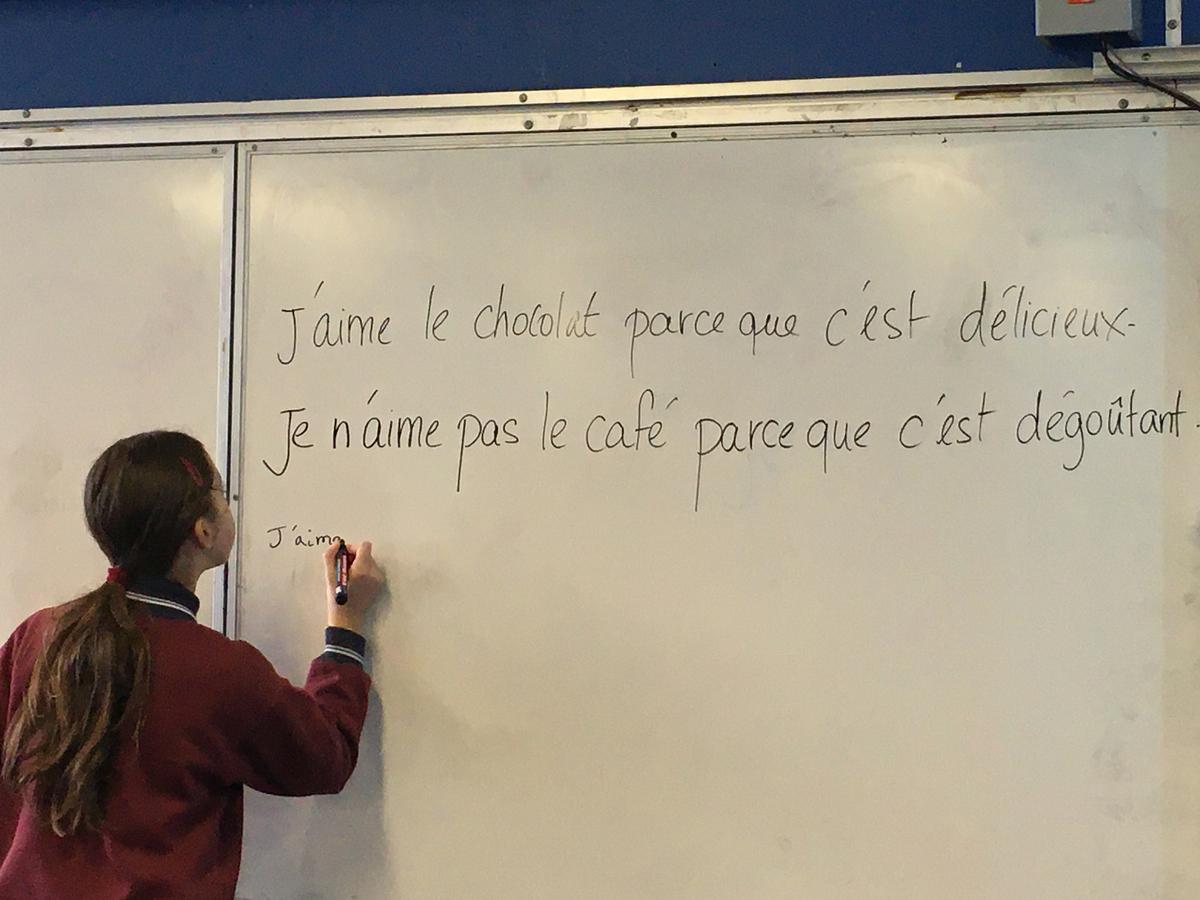 J'aime le chocolat parce que c'est délicieux.
Je n'aime pas le café parce que c'est dégoûtant.
J'aime